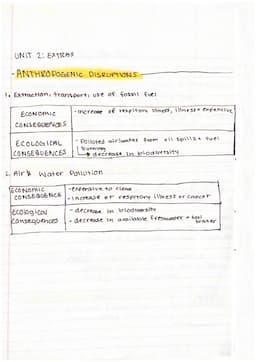 UNIT 2: EXTRAS
- ANTHROPOGENIC DISRUPTIONS
1. Extraction, transport, use of fossil fuel
ECONOMIC CONSEQUENCES
- Increase of respitory illness, illness = expensive
ECOLOGICAL CONSEQUENCES
- Polluted air/water from oil spills + fuel
burning
↳ decrease in biodiversity
2. Air & Water Pollution
ECONOMIC CONSEQUENCE
- expensive to clean
- increase of respitory illness or cancer
Ecological Consequences
- decrease in biodiversity
- decrease in available freshwater + soil
water